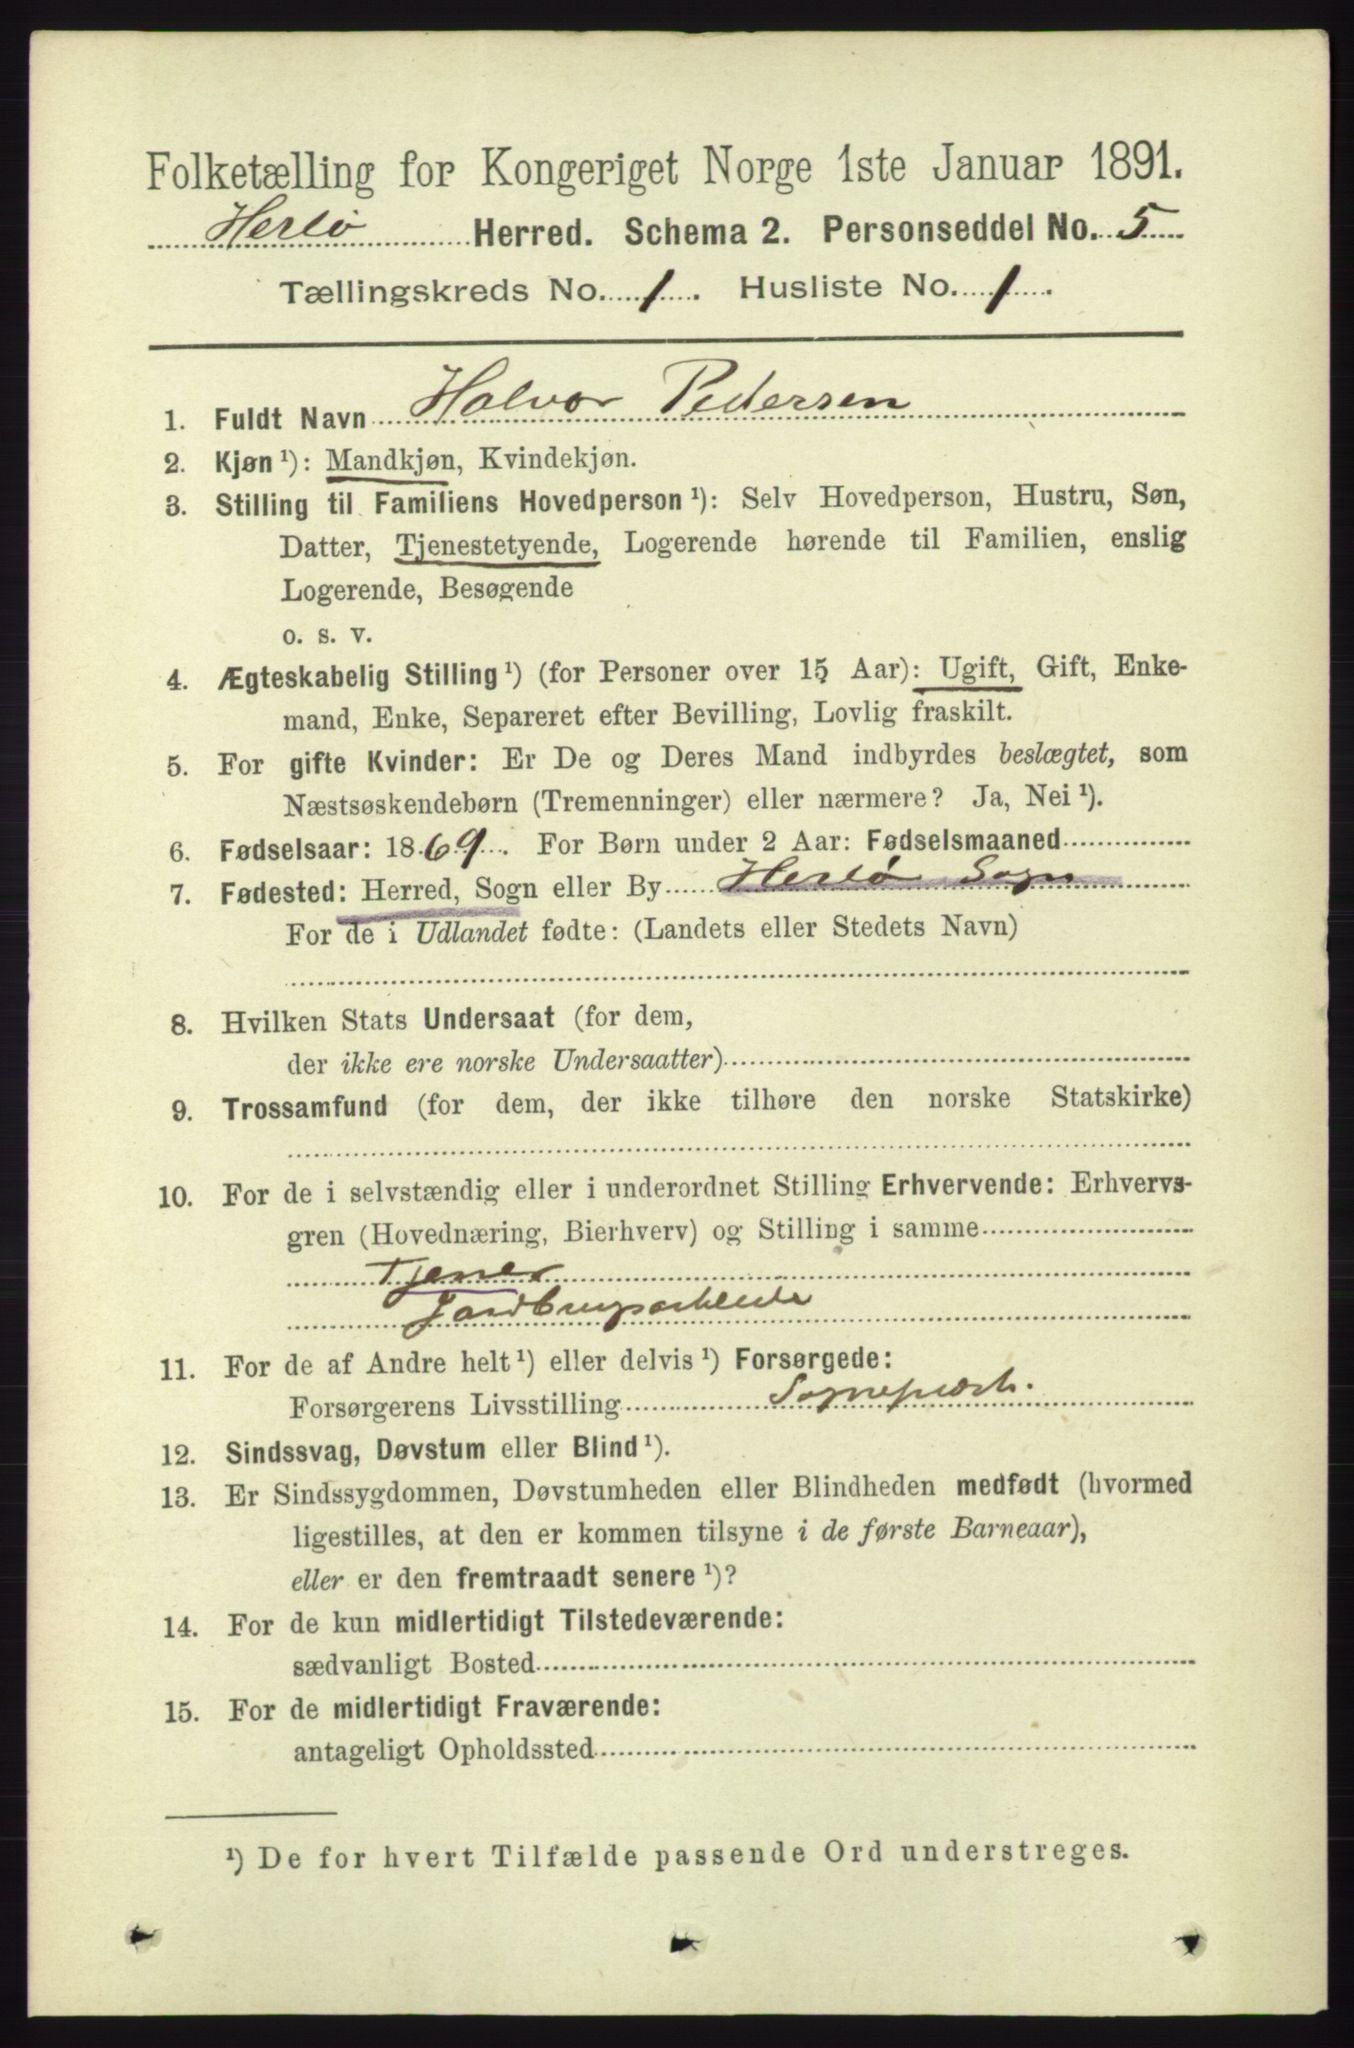 Folketælling for Kongeriget Norge 1ste Januar 1891.
Herlö Herred. Schema 2. Personseddel No. 5
Tællingskreds No. 1. Husliste No. 1.
1. Fuldt Navn Halvor Pedersen
2. Kjøn¹): Mandkjøn, Kvindekjøn.
3. Stilling til Familiens Hovedperson¹): Selv Hovedperson, Hustru, Søn,
Datter, Tjenestetyende, Logerende hørende til Familien, enslig
Logerende, Besøgende
o. s. v.
4. Ægteskabelig Stilling¹) (for Personer over 15 Aar): Ugift, Gift, Enke-
mand, Enke, Separeret efter Bevilling, Lovlig fraskilt.
5. For gifte Kvinder: Er De og Deres Mand indbyrdes beslægtet, som
Næstsøskendebørn (Tremenninger) eller nærmere? Ja, Nei¹).
6. Fødselsaar: 1869. For Børn under 2 Aar: Fødselsmaaned
7. Fødested: Herred, Sogn eller By Herlö Sogn
For de i Udlandet fødte: (Landets eller Stedets Navn)
8. Hvilken Stats Undersaat (for dem,
der ikke ere norske Undersaatter)
9. Trossamfund (for dem, der ikke tilhøre den norske Statskirke)
10. For de i selvstændig eller i underordnet Stilling Erhvervende: Erhvervs-
gren (Hovednæring, Bierhverv) og Stilling i samme
Tjener
Jordbrugsarbeide
11. For de af Andre helt¹) eller delvis¹) Forsørgede:
Forsørgerens Livsstilling Sognepræst.
12. Sindssvag, Døvstum eller Blind¹).
13. Er Sindssygdommen, Døvstumheden eller Blindheden medfødt (hvormed
ligestilles, at den er kommen tilsyne i de første Barneaar),
eller er den fremtraadt senere¹)?
14. For de kun midlertidigt Tilstedeværende:
sædvanligt Bosted
15. For de midlertidigt Fraværende:
antageligt Opholdssted
¹) De for hvert Tilfælde passende Ord understreges.